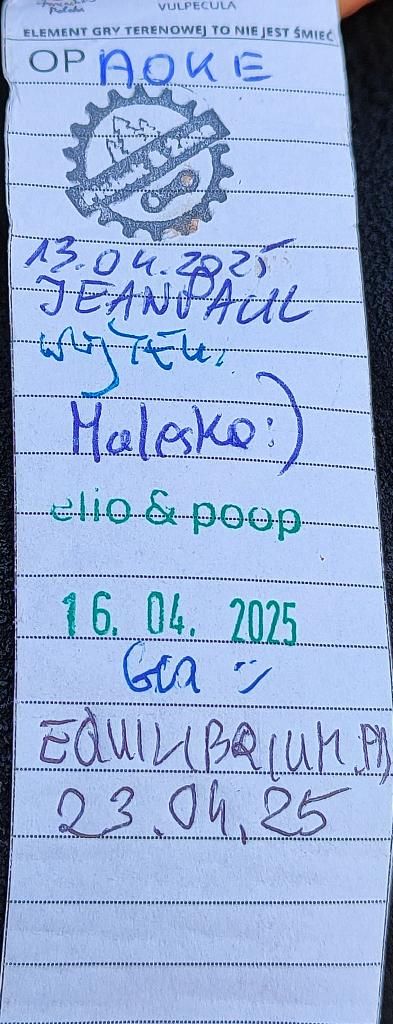 VULPECULA
ELEMENT GRY TERENOWEJ TO NIE JEST ŚMIEĆ
OP AOKE
13.04.2025
JEANPAUL
Malesko:)
elio & poop
16. 04. 2025
EQUILIBRIUM.PM
23.04.25